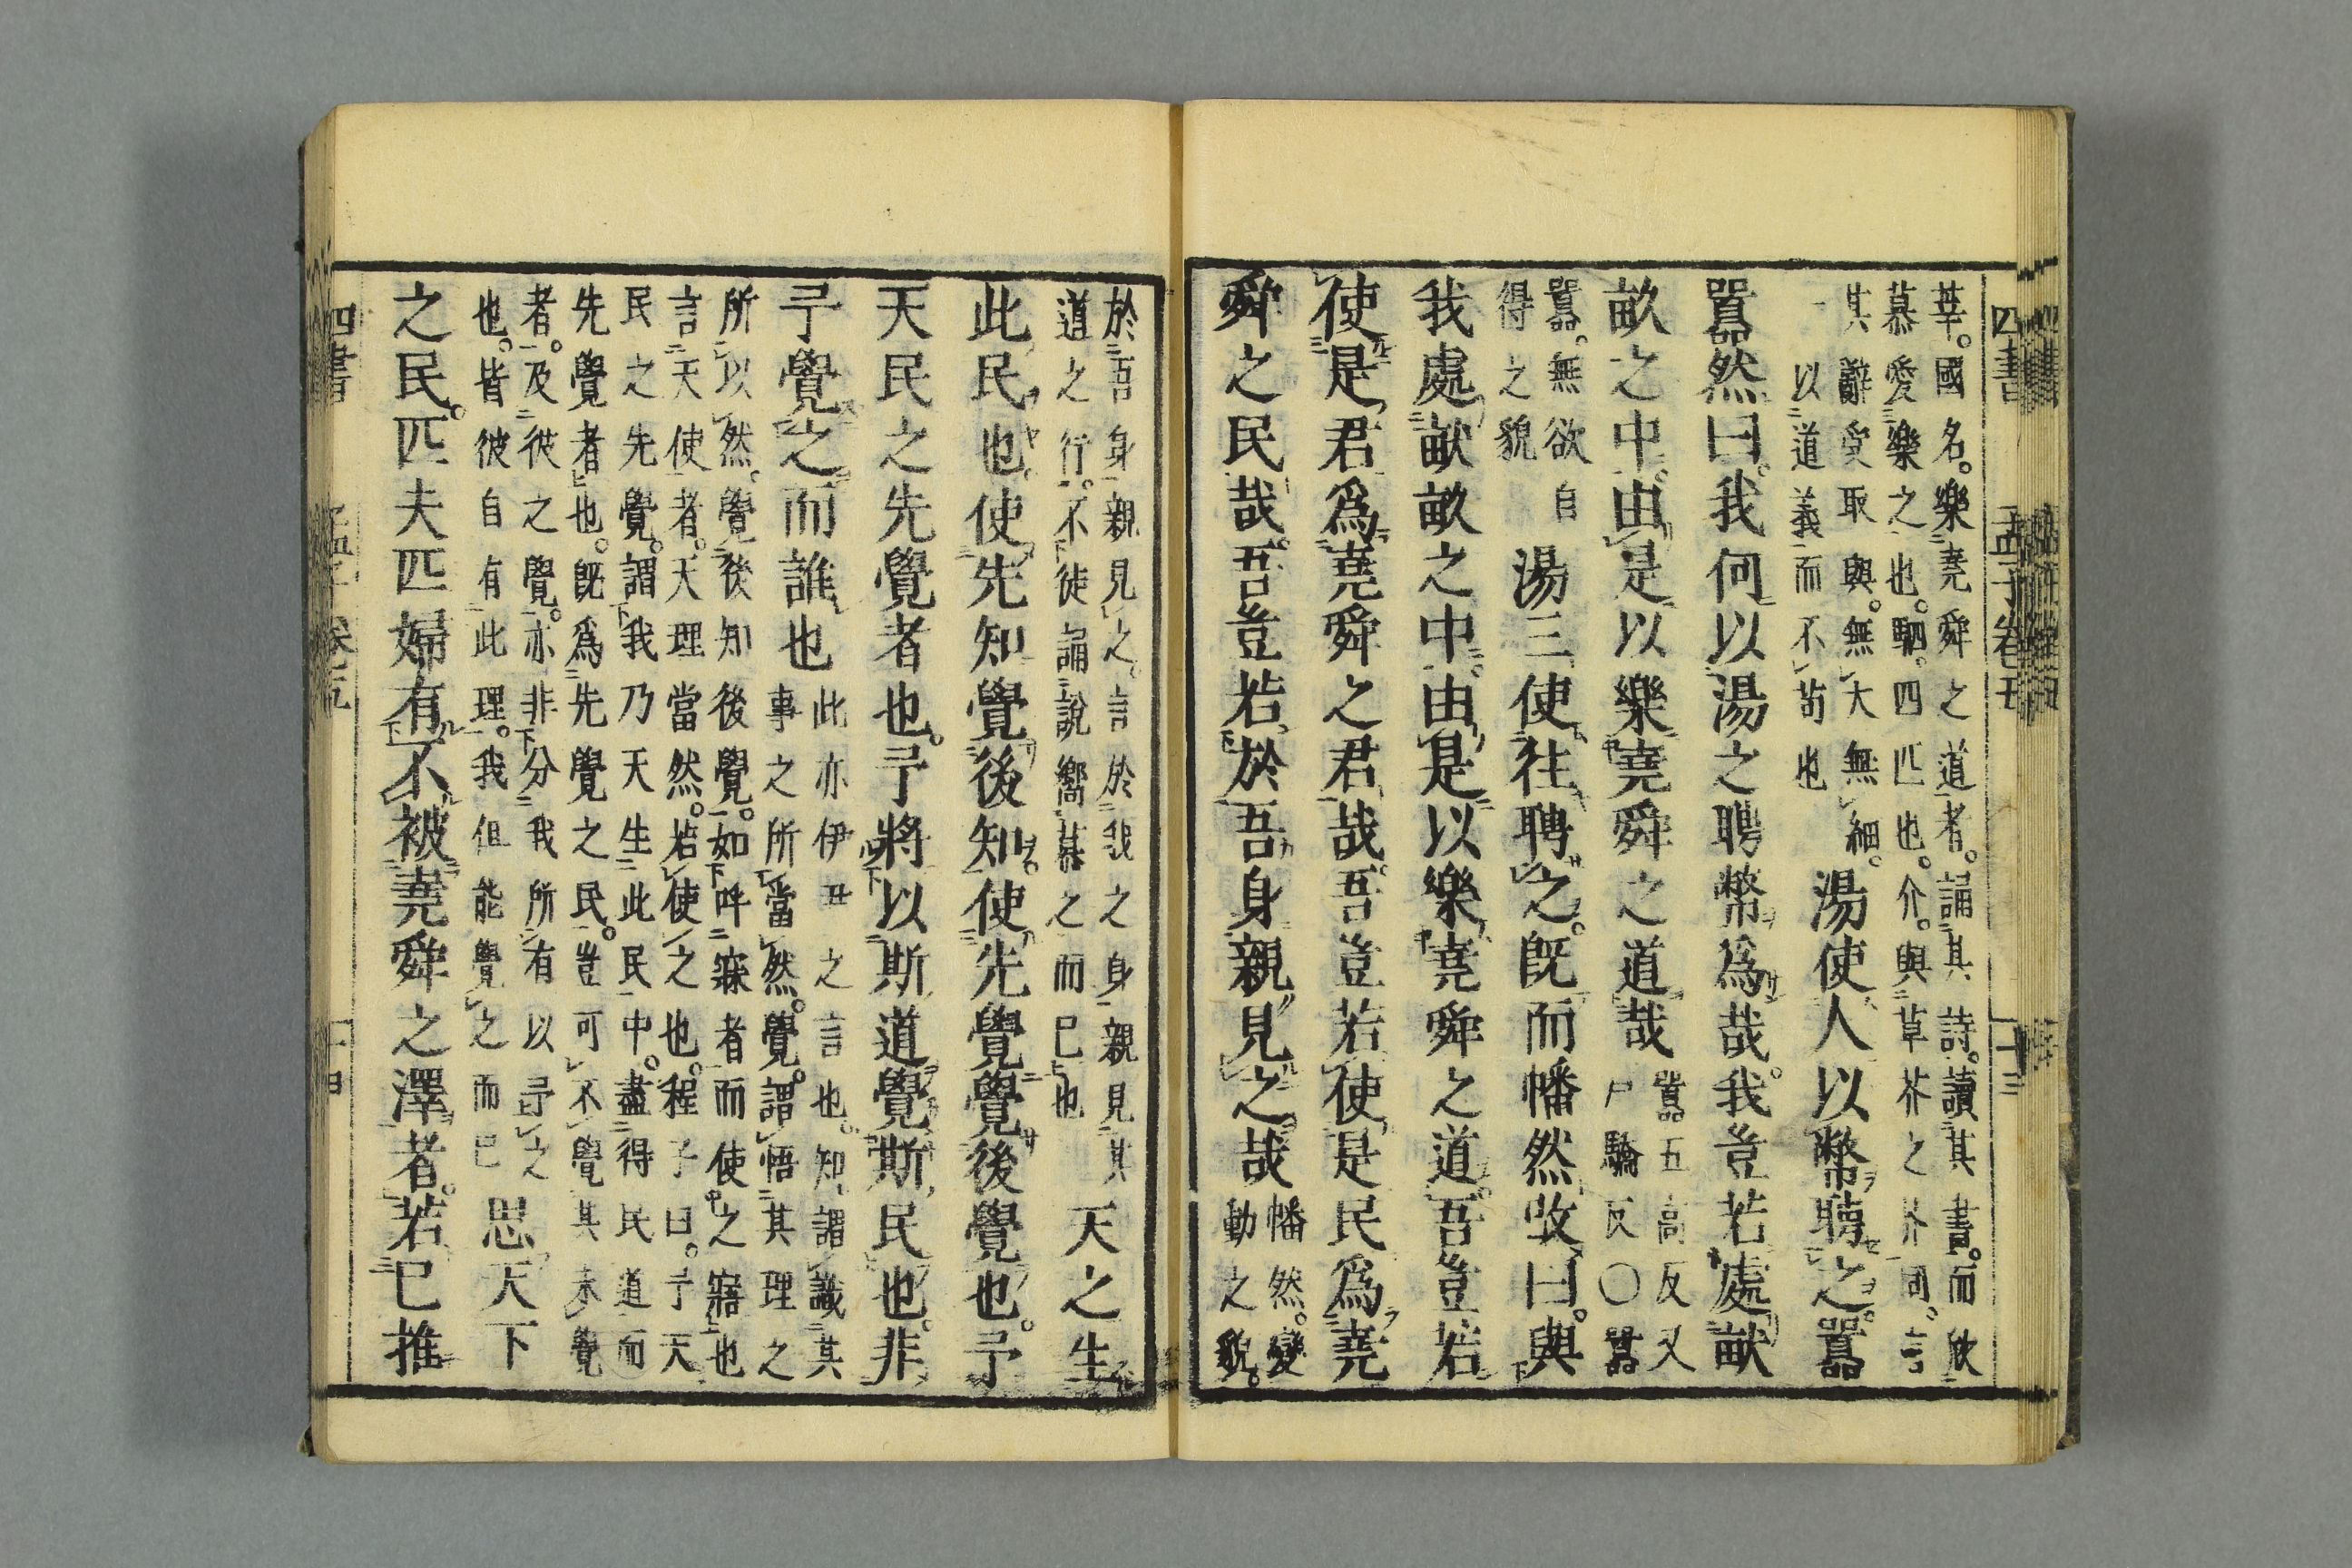 四書 孟子卷五 十三
莘。國名。樂堯舜之道者。誦其詩。讀其書。而欣
慕愛樂之也。駟。四匹也。介。與草芥之芥同。言
其辭受取與。無大無細。
一以道義而不苟也
湯使人以幣聘之。囂
囂然曰。我何以湯之聘幣爲哉。我豈若處畎
畝之中。由是以樂堯舜之道哉
囂五高反又
戶驕反〇囂
囂。無欲自
得之貌
湯三使往聘之。既而幡然改曰。與
我處畎畝之中。由是以樂堯舜之道。吾豈若
使是君爲堯舜之君哉。吾豈若使是民爲堯
舜之民哉。吾豈若於吾身親見之哉
幡然。變
動之貌。
於吾身親見之。言於我之身親見其
道之行。不徒誦說嚮慕之而已也
天之生
此民也。使先知覺後知。使先覺覺後覺也。予
天民之先覺者也。予將以斯道覺斯民也。非
予覺之而誰也
此亦伊尹之言也。知。謂識其
事之所當然。覺。謂悟其理之
所以然。覺後知後覺。如呼寐者而使之寤也
言天使者。天理當然。若使之也。程子曰。予天
民之先覺。謂我乃天生此民中。盡得民道而
先覺者也。既爲先覺之民。豈可不覺其未覺
者。及彼之覺。亦非分我所有以予之
也。皆彼自有此理。我但能覺之而已
思天下
之民。匹夫匹婦有不被堯舜之澤者。若已推
四書 孟子 卷五